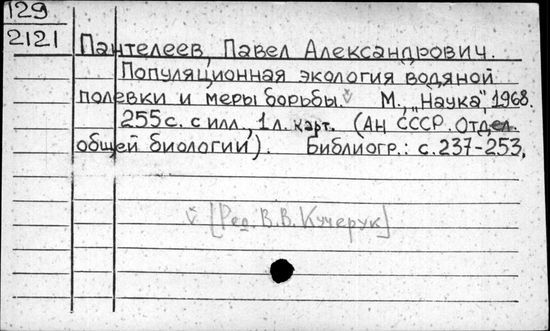 129
2121
Пантелеев, Павел Александрович.
Популяционная экология водяной
полевки и меры борьбы. М., "Наука", 1968.
255с. с илл., 1л. карт. (АН СССР. Отдел.
общей биологии). Библиогр.: с.237-253.
[Ред. В.В. Кучерук]